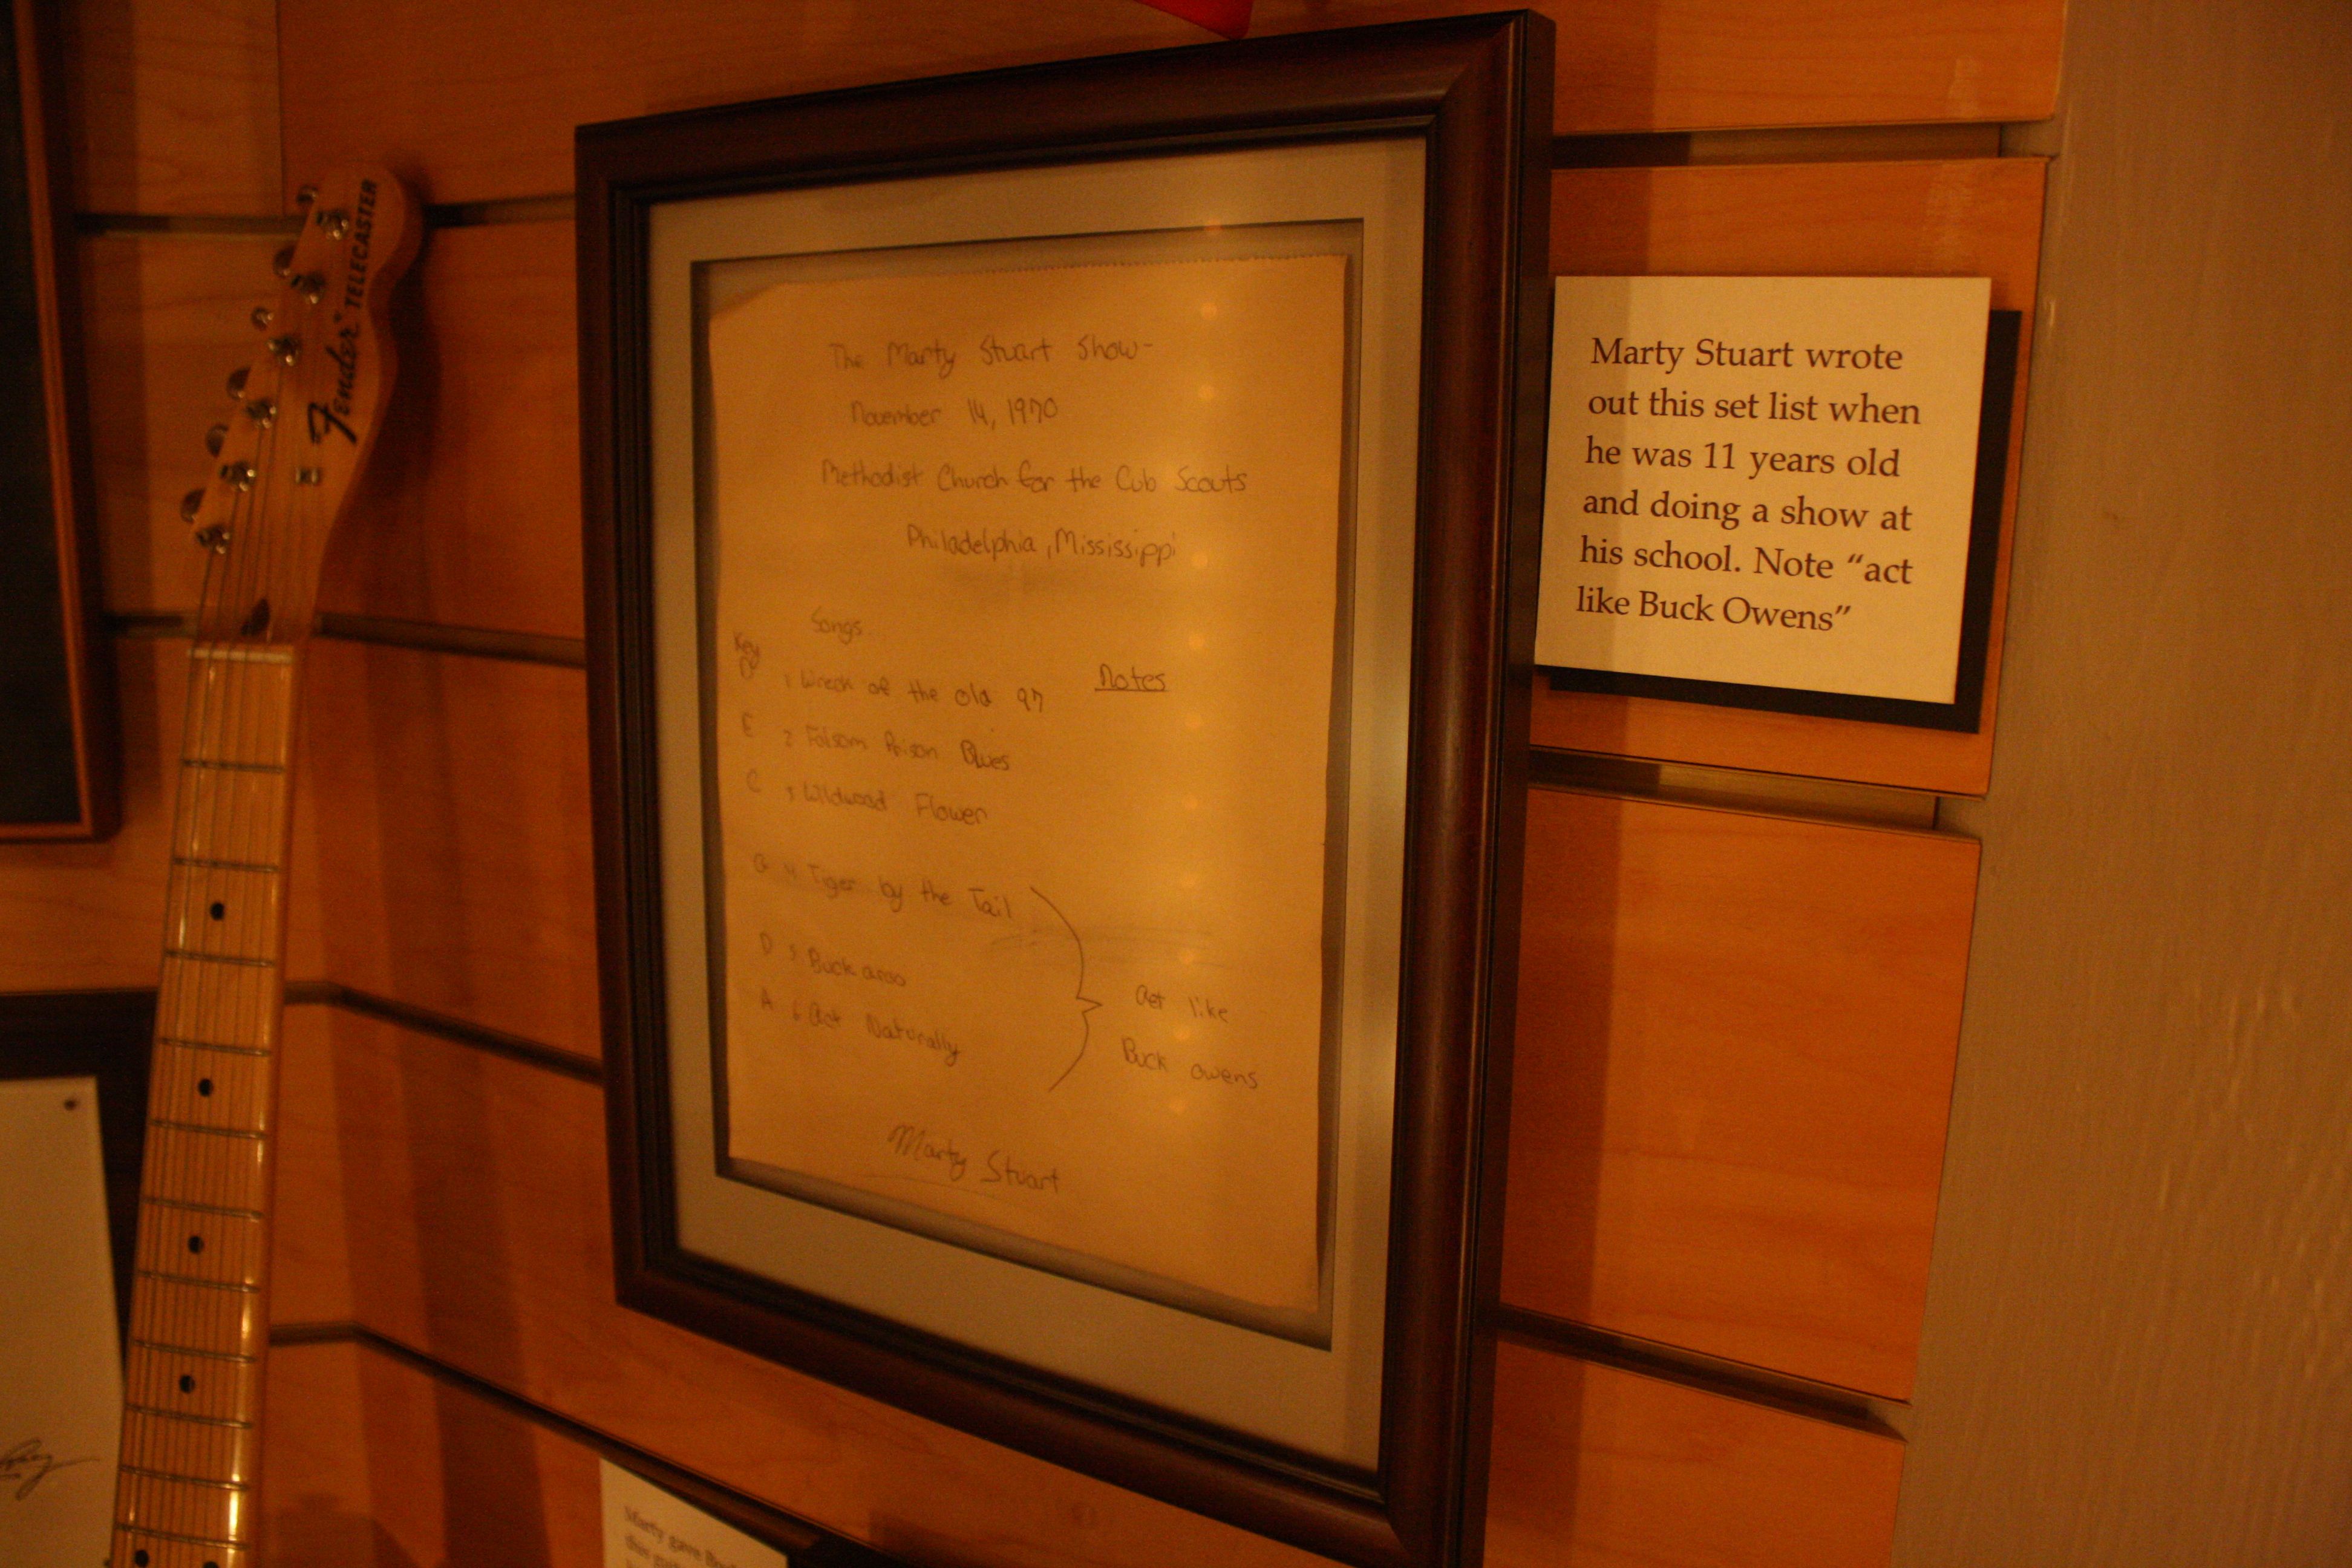 Fender TELECASTER
The Marty Stuart Show-
November 14, 1970
Methodist Church for the Cub Scouts
Philadelphia, Mississippi
Songs
Key
Notes
D 1 Wreck of the Old 97
E 2 Folsom Prison Blues
C 3 Wildwood Flower
G 4 Tiger by the Tail
D 5 Buckaroo
A 6 Act Naturally
act like
Buck owens
Marty Stuart
Marty Stuart wrote
out this set list when
he was 11 years old
and doing a show at
his school. Note “act
like Buck Owens”
Marty gave
this